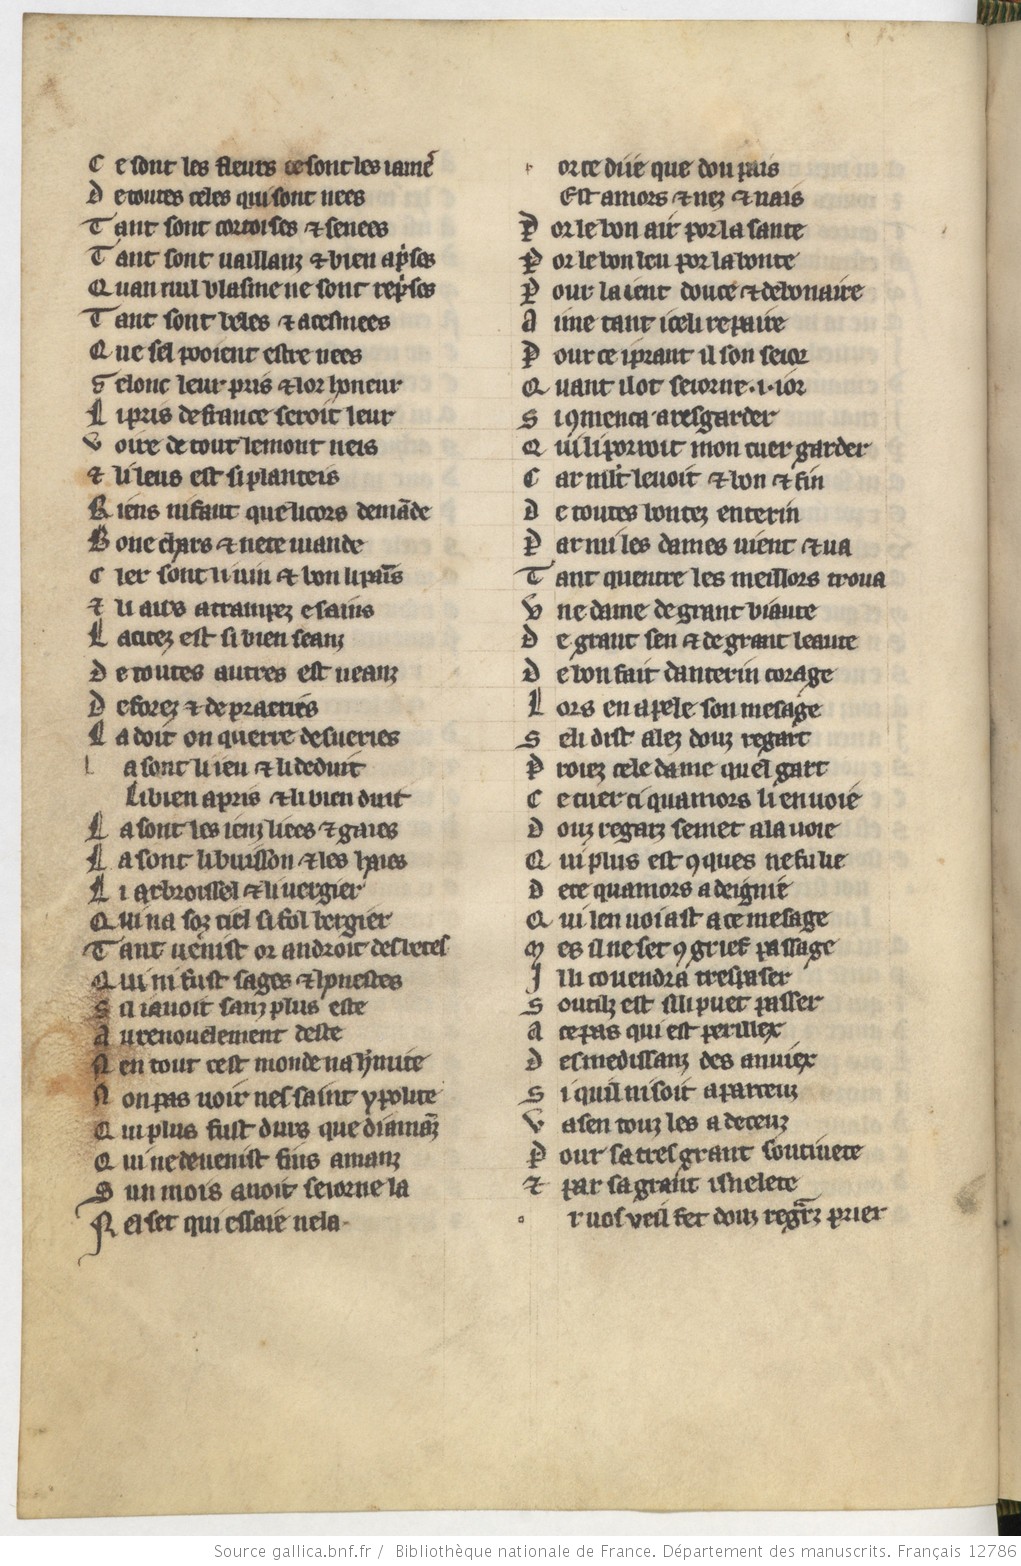 C e sont les fleurs ce sont les iamẽ
D e toutes celes qui sont nees
T ant sont cortoises ⁊ senees
T ant sont uaillanz ⁊ bien ap̃ses
Q uan nul blasme ne sont rep̃ses
T ant sont beles ⁊ acesmees
Q ue sel pooient estre uees
S elonc leur pris ⁊ lor honeur
L i pris de france seroit leur
V oire de tout le mont neis
⁊ li leus est si planteis
R iens ni faut que li cors demãde
B one chars ⁊ nete uiande
C ler sont li uin ⁊ bon li pains
⁊ li airs atranpez e sains
L acitez est si bien seanz
D e toutes autres est neanz
D e forez ⁊ de praeries
L a doit on querre desueries
l a sont li ieu ⁊ li deduit
Li bien apris ⁊ li bien duit
L a sont les ienz liees ⁊ gaies
L a sont li buisson ⁊ les haies
L i arbroissel ⁊ li uergier
Q ui na soz ciel si fol bergier
T ant uenist or androit des betes
Q ui ni fust sages ⁊ honestes
S il iauoit sanz plus este
A u renouelement deste
N en tout cest monde na h̃mite
N on pas uoir nes saint ypolite
Q ui plus fust durs que diamãz
Q ui ne deuenist fins amanz
S un mois auoit seiorne la
N el set qui essaie nela
or ce di ie que dou pais
Est amors ⁊ nez ⁊ nais
P or le bon air por la sante
P or le bon leu por la bonte
P our la ient douce ⁊ debonaire
A ime tant iceli repaire
P our ce iprant il son seior
Q uant il ot seiorne .i. ior
S i ꝯmenca a resgarder
Q ui li porroit mon cuer garder
C ar mlt̃ le uoit ⁊ bon ⁊ fin
D e toutes bontez enterin
P ar mi les dames uient ⁊ ua
T ant quentre les meillors troua
V ne dame de grant biaute
D e grant sen ⁊ de grant leaute
D e bon fait danterin corage
L ors en apele son mesage
S eli dist alez douz regart
P roiez cele dame quel gart
C e cuer ci quamors li enuoie
D ouz regarz se met a la uoie
Q ui plus est ꝯques ne fu lie
D ece quamors a deignie
Q ui len uoiast a ce mesage
M es il ne set ꝯ grief passage
I lli couendra trespaser
S outilz est sili puet passer
A ce pas qui est perillex
D es medissanz des anuiex
S i quil ni soit aparceuz
V a sen touz les a deceuz
P our sa tres grant soutinete
⁊ par sa grant isnelete
r uos veũ fet douz regrz̃ prier
Source gallica.bnf.fr / Bibliothèque nationale de France. Département des manuscrits. Français 12786